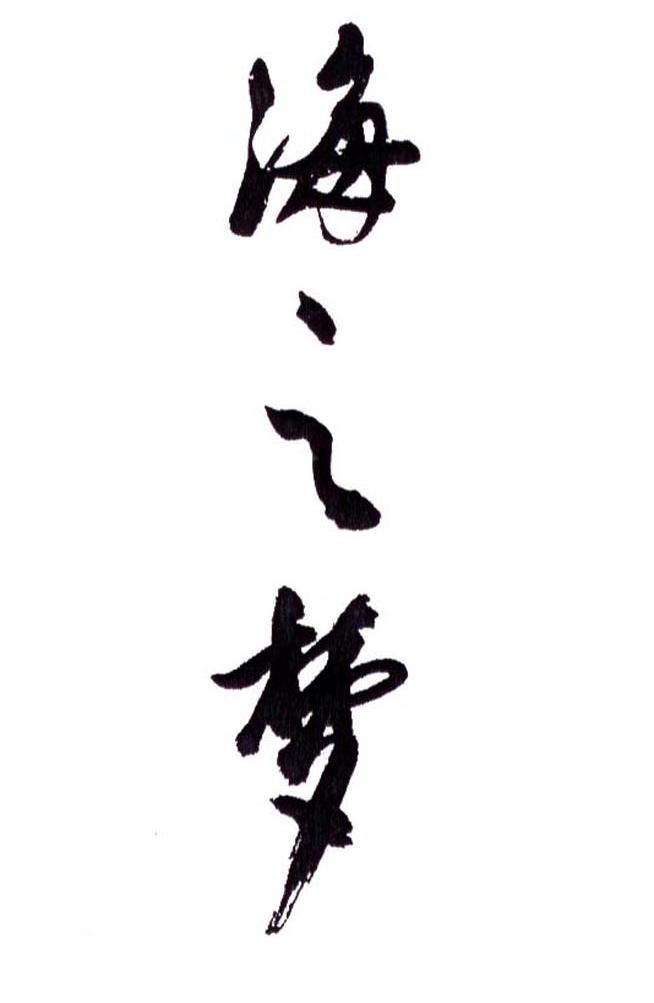 海之梦